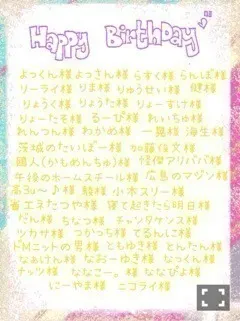 Happy Birthday
よっくん様 よっさん様 らすく様 らんぽ様
リーライ様 りま様 りゅうせい様 健様
りょうく様 りょうた様 りょーすけ様
りょーたそ様 るーび様 れいちゅ様
れんつん様 わかめ様 一晃様 海生様
茨城のたいぽー様 加藤俊文様
國人(かもめんちゅ)様 怪傑アリババ様
午後のホームスチール様 広島のマジソン様
高3ω〜♪様 駿様 小木スリー様
省エネたつや様 寝て起きたら明日様
だん様 ちなつ様 チャンタケンス様
ツカサ様 つかっち様 てるんに様
ドMニットの男様 ともゆき様 とんたん様
なぁけん様 なおーゆき様 なっくん様
ナッツ様 ななこー。様 ななぴよ様
にーやま様 ニコライ様